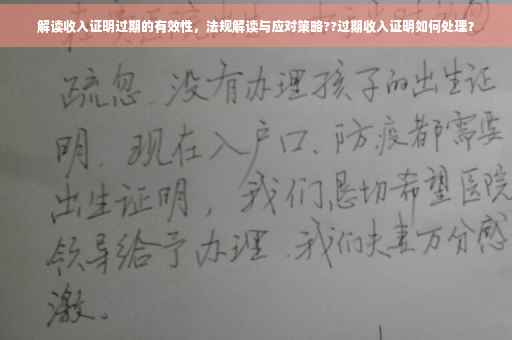 解读收入证明过期的有效性，法规解读与应对策略??过期收入证明如何处理？
疏忽、没有办理孩子的出生证
明、现在入户口、防疫都需要
出生证明，我们恳切希望医院
领导给予办理、我们夫妻万分感
激。